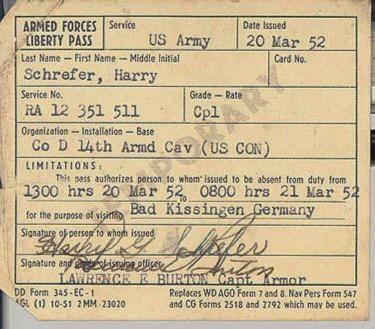 ARMED FORCES LIBERTY PASS
Service US Army
Date Issued 20 Mar 52
Last Name – First Name – Middle Initial Card No.
Schrefer, Harry
Service No. Grade – Rate
RA 12 351 511 Cpl
Organization – Installation – Base
Co D 14th Armd Cav (US CON)
TEMPORARY
LIMITATIONS:
This pass authorizes person to whom issued to be absent from duty from
1300 hrs 20 Mar 52 to 0800 hrs 21 Mar 52
for the purpose of visiting Bad Kissingen Germany
Signature of person to whom issued
Signature and grade of issuing officer
LAWRENCE E BURTON Capt Armor
DD Form 345-EC-1 Replaces WD AGO Form 7 and 8. Nav Pers Form 547
AGL (1) 10-51 2MM-23020 and CG Forms 2518 and 2792 which may be used.